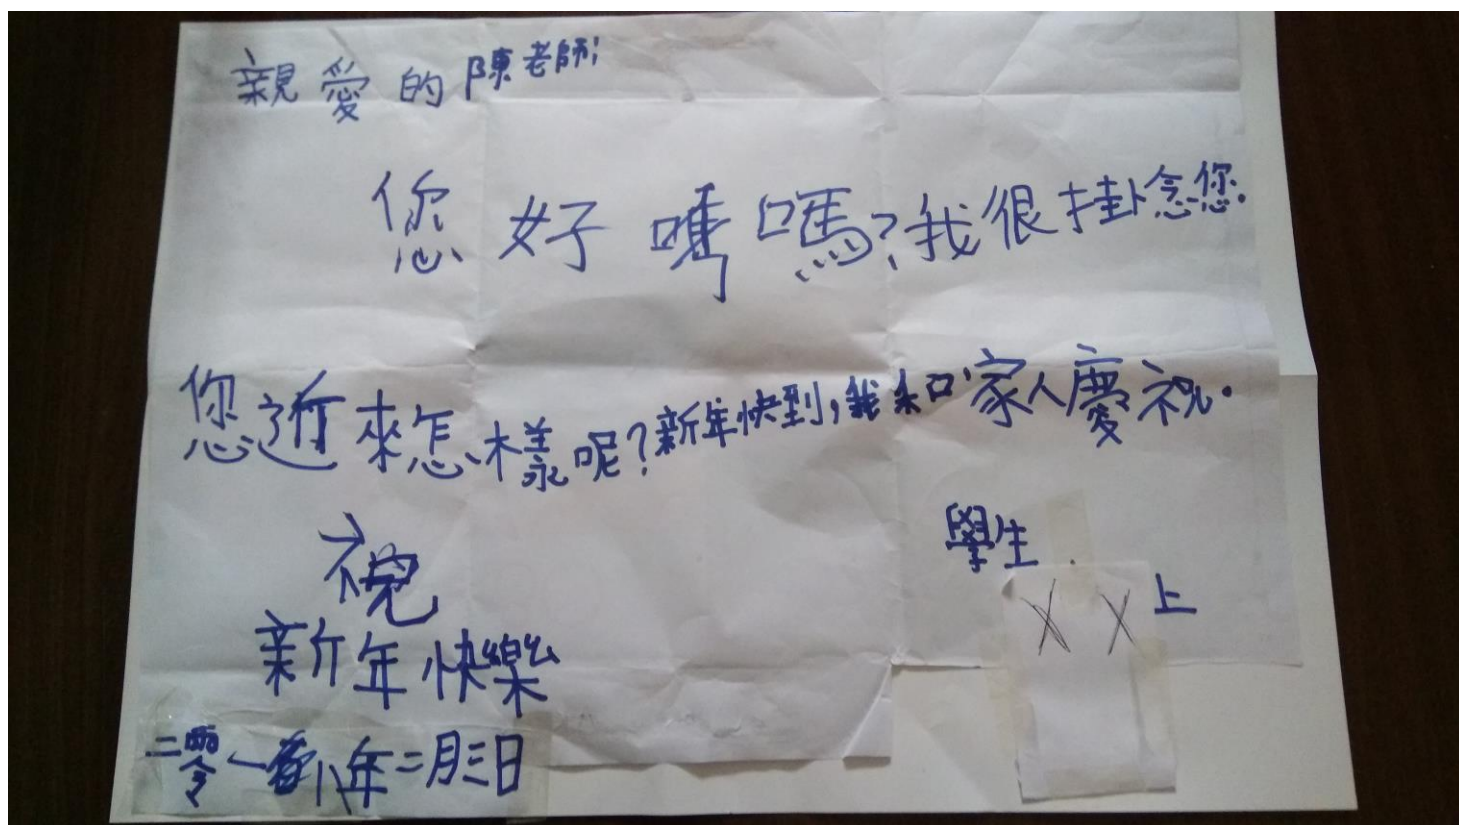 親愛的陳老師:
您好嗎嗎?我很掛念您.
您近來怎樣呢?新年快到,我和家人慶祝.
祝
新年快樂
學生 X X 上
二零一八年二月三日